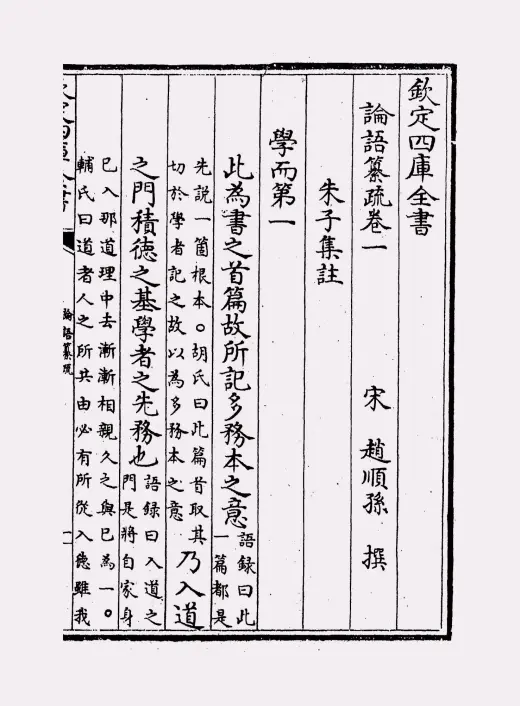 欽定四庫全書
論語纂疏卷一
宋 趙順孫 撰
朱子集註
學而第一
此為書之首篇故所記多務本之意
語録曰此
一篇都是
先説一箇根本。胡氏曰此篇首取其
切於學者記之故以為多務本之意
乃入道
之門積德之基學者之先務也
語録曰入道之
門是將自家身
已入那道理中去漸漸相親久之與已為一。
輔氏曰道者人之所共由必有所從入德雖我
論語纂疏